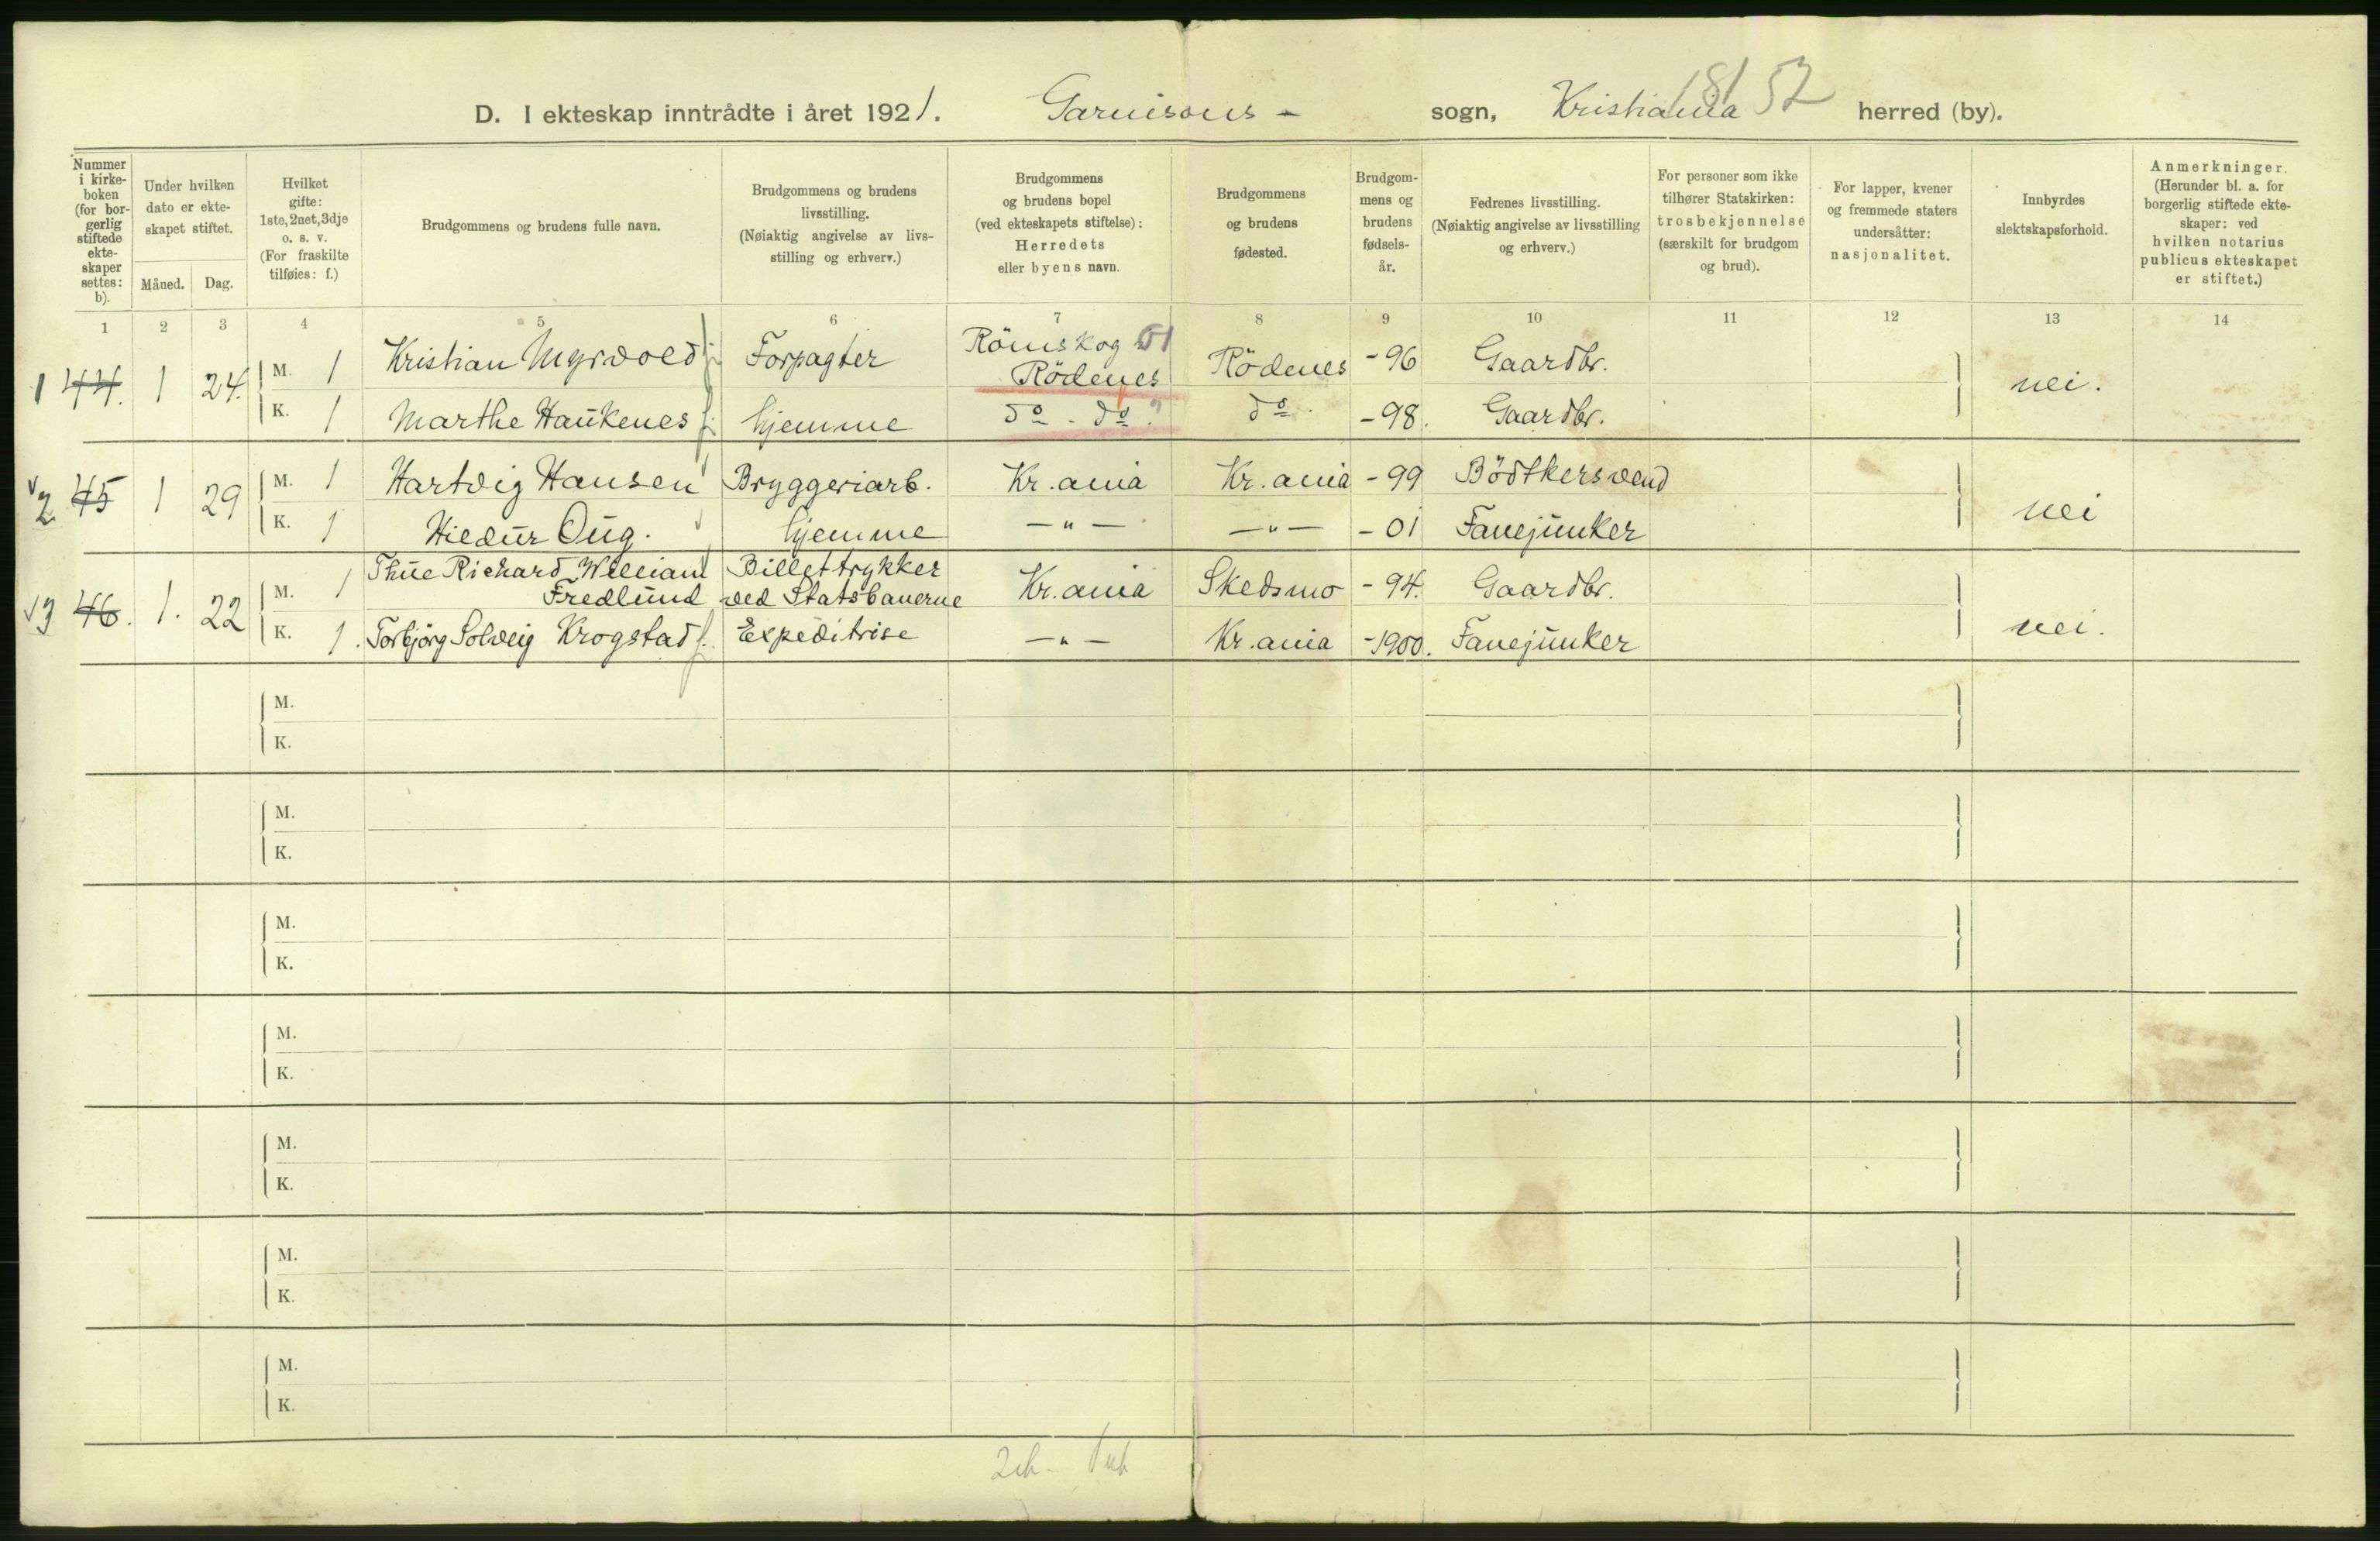 D. I ekteskap inntrådte i året 1921. Garnisons - sogn, Kristiania herred (by).
181 52
Nummer i kirkeboken (for borgerlig stiftede ekteskaper settes: b).
Under hvilken dato er ekteskapet stiftet.
Måned. Dag.
Hvilket gifte: 1ste, 2net, 3dje o. s. v. (For fraskilte tilføies: f.)
Brudgommens og brudens fulle navn.
Brudgommens og brudens livsstilling. (Nøiaktig angivelse av livsstilling og erhverv.)
Brudgommens og brudens bopel (ved ekteskapets stiftelse): Herredets eller byens navn.
Brudgommens og brudens fødested.
Brudgommens og brudens fødselsår.
Fedrenes livsstilling. (Nøiaktig angivelse av livsstilling og erhverv.)
For personer som ikke tilhører Statskirken: trosbekjennelse (særskilt for brudgom og brud).
For lapper, kvener og fremmede staters undersåtter: nasjonalitet.
Innbyrdes slektskapsforhold.
Anmerkninger. (Herunder bl. a. for borgerlig stiftede ekteskaper: ved hvilken notarius publicus ekteskapet er stiftet.)
1 2 3 4 5 6 7 8 9 10 11 12 13 14
1 44. 1 24. M. 1 Kristian Myrvold Forpagter Römskog Rödenes Rödenes -96 Gaardbr. nei.
K. 1 Marthe Haukenes hjemme do - do do -98. Gaardbr.
2 45 1 29 M. 1 Hartvig Hansen Bryggeriarb. Kr.ania Kr.ania -99 Bödtkersvend nei
K. 1 Hildur Oug. hjemme -"- -"- -01 Fanejunker
3 46. 1. 22 M. 1 Thue Richard William Fredlund Billettrykker ved Statsbanerne Kr.ania Skedsmo -94. Gaardbr. nei.
K. 1. Torbjörg Solveig Krogstad Expeditrise -"- Kr.ania -1900. Fanejunker
M.
K.
M.
K.
M.
K.
M.
K.
M.
K.
M.
K.
M.
K.